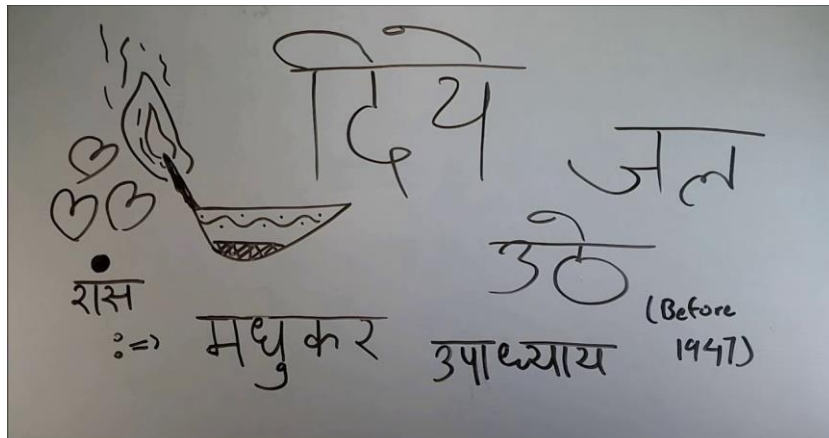 दिये
जल
उठे
(Before
1947)
रास
:=> मधुकर उपाध्याय